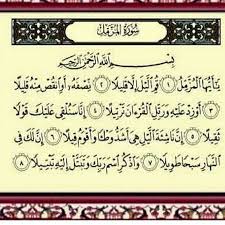 سورة المزمل
بسم الله الرحمن الرحيم
يَٰٓأَيُّهَا ٱلْمُزَّمِّلُ ١ قُمِ ٱلَّيْلَ إِلَّا قَلِيلًا ٢ نِّصْفَهُۥٓ أَوِ ٱنقُصْ مِنْهُ قَلِيلًا
٣ أَوْ زِدْ عَلَيْهِ وَرَتِّلِ ٱلْقُرْءَانَ تَرْتِيلًا ٤ إِنَّا سَنُلْقِى عَلَيْكَ قَوْلًا
ثَقِيلًا ٥ إِنَّ نَاشِئَةَ ٱلَّيْلِ هِىَ أَشَدُّ وَطْـًٔا وَأَقْوَمُ قِيلًا ٦ إِنَّ لَكَ فِى
ٱلنَّهَارِ سَبْحًا طَوِيلًا ٧ وَٱذْكُرِ ٱسْمَ رَبِّكَ وَتَبَتَّلْ إِلَيْهِ تَبْتِيلًا ٨